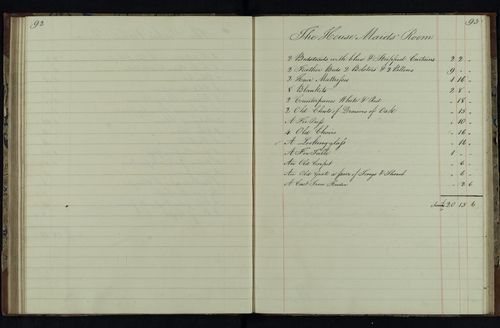 92
93
The House Maids Room
2 Bedsteads with blue & Stripped Curtains " 2 " 2 " -
2 Feather Beds 2 Bolsters & 2 Pillows " 9 " - " -
2 Hair Mattrasses 1 " 10 " -
8 Blankets 2 " 8 " -
2 Counterpanes White & Red " 18 " -
2 Old Chests of Drawers of Oak " 15 " -
A Fir Press " 10 " -
4 Old Chairs " 16 " -
A Looking glass
A Fir Table 1 " - " -
An Old Carpet " 6 " -
An Old Grate a pair of Tongs & Shovel " 6 " -
A Cast Iron Fender " 2 " 6
20 " 15 " 6